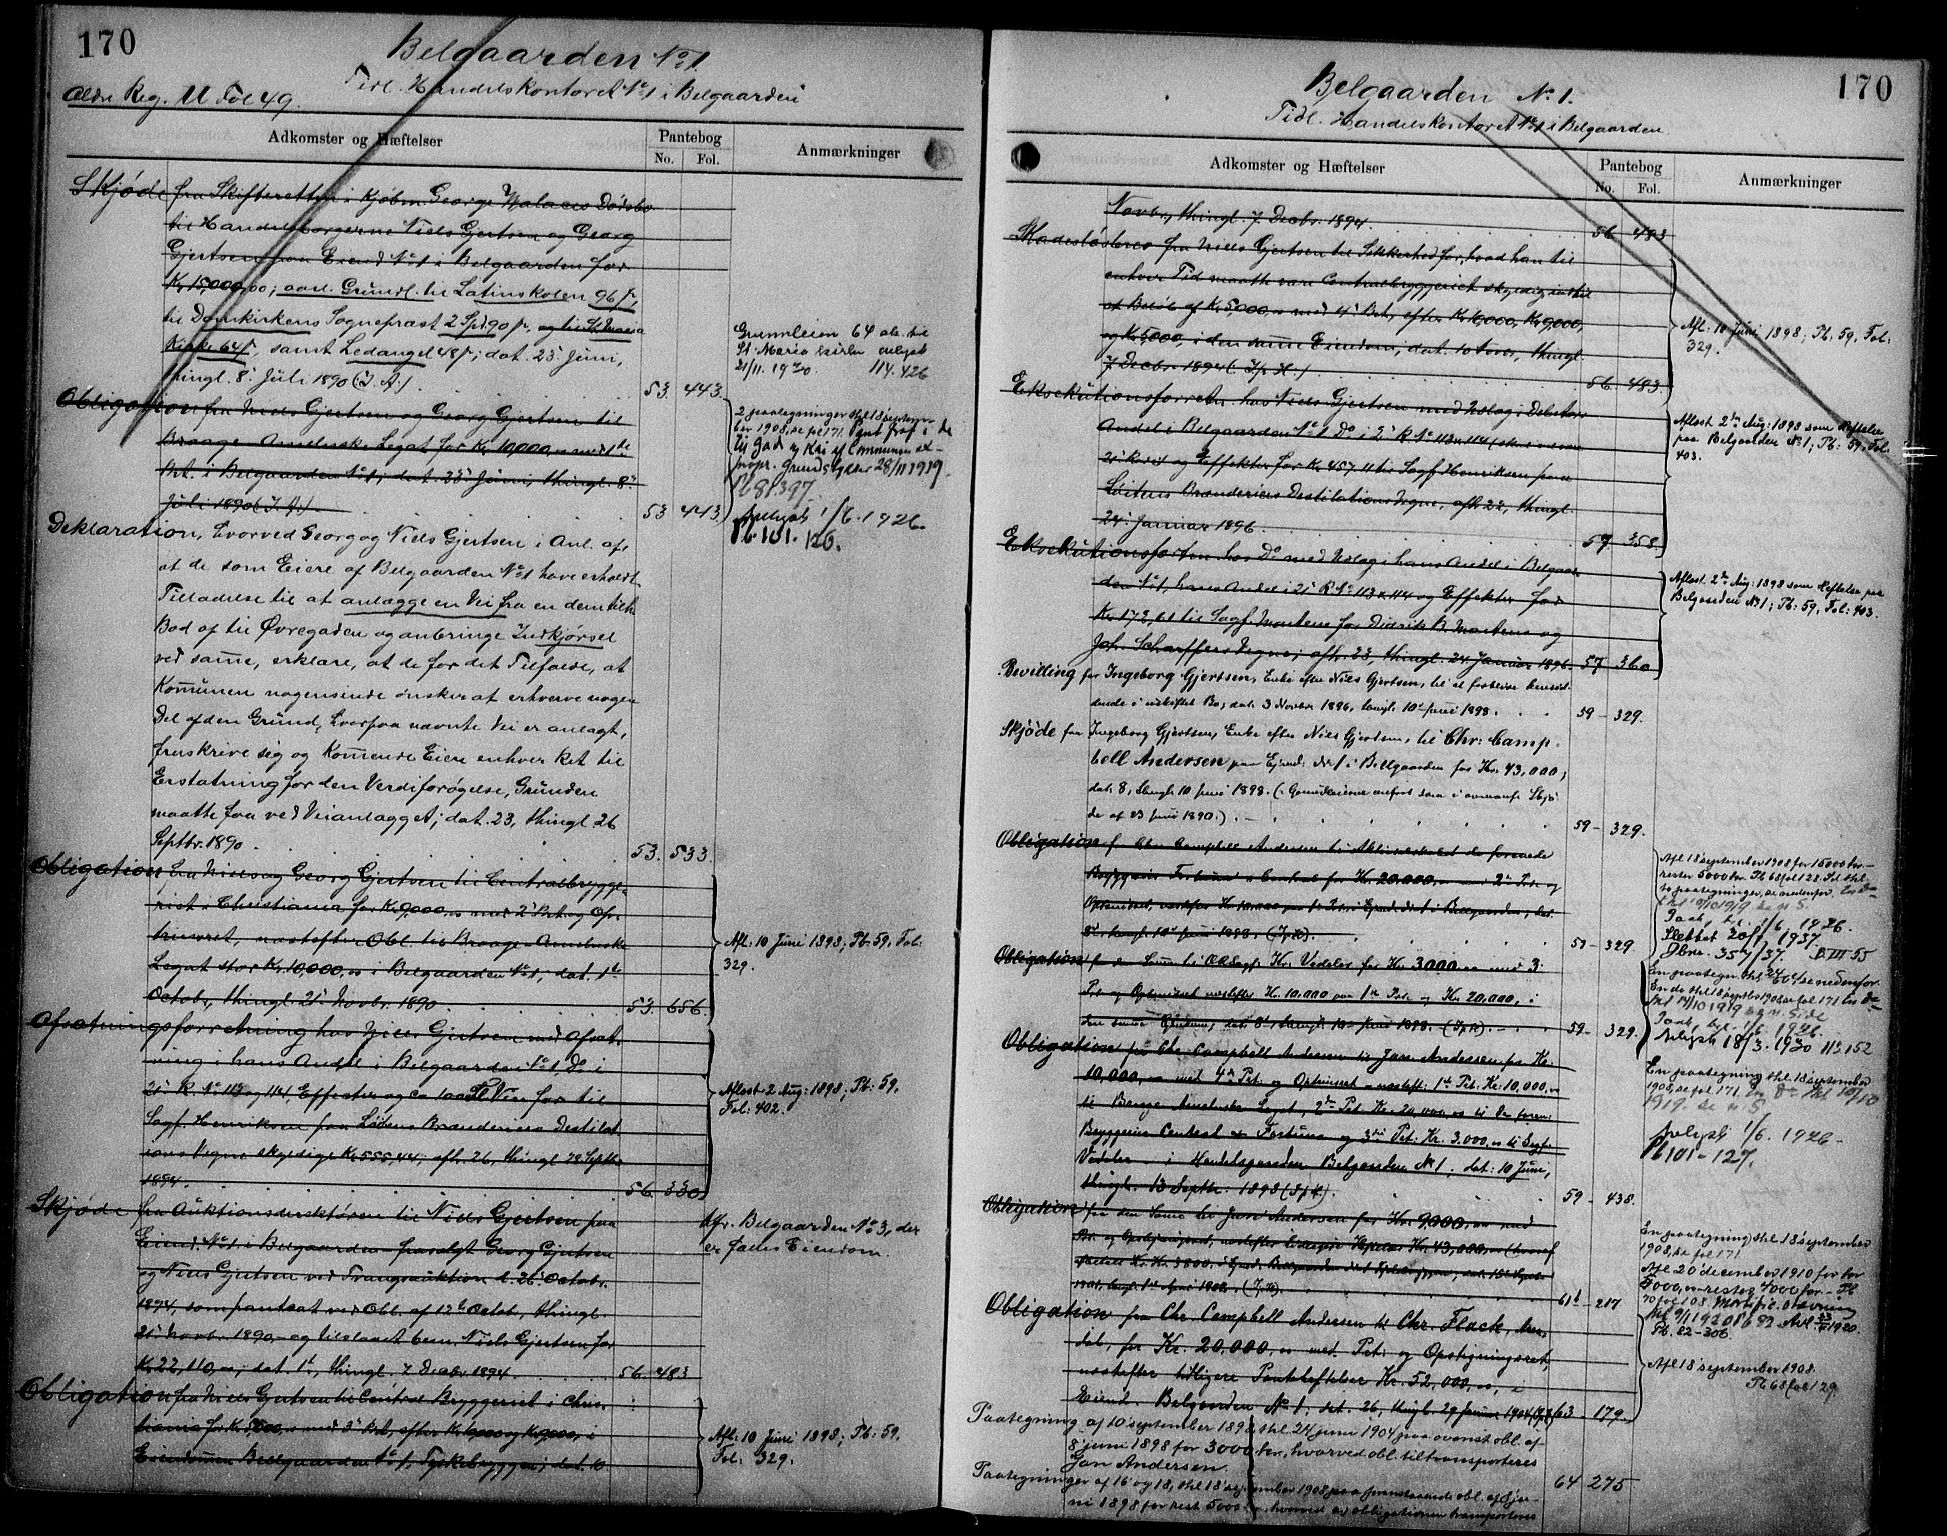 170
Belgaarden No 1.
Tidl. Handelskontoret No 1 i Belgaarden
Ældre Reg. M Fol 49.
Adkomster og Hæftelser
Pantebog
No. Fol.
Anmærkninger
Skjøde fra Skifteretten i Kjøbm George Walaces Dødsbo
til Handelsborgerne Niels Gjertsen og Georg
Gjertsen paa Eiend No 1 i Belgaarden for
Kr 15,000,00; aarl. Grundl. til Latinskolen 96 s,
til Domkirkens Sognepræst 2 Spd 90 s, og til St Maria
Kirke 64 s, samt Ledangel 48 s; dat. 23 Juni,
thingl. 8 Juli 1890 (I. A.) 53. 443.
Grunnleien 64 øb. til
St Maria kirke avlyst
21/11. 1930. 114. 426
Obligation fra Niels Gjertsen og Georg Gjertsen til
Braage-Amlenske Legat for Kr 10,000,00 med 1ste
Pri. i Belgaarden No 1; dat. 23 Juni, thingl. 8
Juli 1890 (I. A.) 53 443.
2 paategninger thl 18 septem-
ber 1908, se fol 171 Pant fraf i de
til gad og Kai af Commun
propr. Grundstykker 28/11 1919.
Pb 81.397.
Avlyst 1/6. 1926.
Pb. 101. 126.
Deklaration, hvorved Georg og Niels Gjertsen i Anl. af,
at de som Eiere af Belgaarden No 1 have erholdt
Tilladelse til at anlægge en Vei fra en dem tilh.
Bod af til Øvregaden og anbringe Indkjørsel
ved samme, erklare, at de for det Tilfælde, at
Kommunen nogensinde ønsker at erhverve nogen
Del af den Grund, hvorpaa nævnte Vei er anlagt,
fraskrive sig og kommende Eiere enhver Ret til
Erstatning for den Verdiforøgelse, Grunden
maatte faa ved Veianlægget; dat. 23, thingl. 26
Septbr. 1890. 53. 533.
Obligation fra Niels og Georg Gjertsen til Centralbrygge-
riet i Christiania for Kr 9,000,00 med 2 Pri. og
, næstefter Obl. til Braage-Amlenske
Legat stor Kr. 10,000,00 i Belgaarden No 1; dat. 1ste
Octobr, thingl. 21 Novbr. 1890 53. 656.
Afl. 10 Juni 1898; Pb. 59. Fol.
329.
Afsætningsforretning hos Niels Gjertsen med Afsæt-
ning i hans Andel i Belgaarden No 1, Do i
2 R No 113 og 114, Effecter og ca 100 Fl Vin for til
Sagf. Henriksen paa Løitens Brænderies Destilat-
ions Vegne skyldige Kr 555,44; afh. 26, thingl. 28 Septb.
1894. 56. 330
Aflæst 2 Aug: 1898; Pb: 59.
Fol: 402.
Skjøde fra Auktionsdirektøren til Niels Gjertsen paa
Eiend. No 1 i Belgaarden frasolgt Georg Gjertsen
og Niels Gjertsen ved Tvangsauktion d. 26 Octobr.
1894, som pantsat ved Obl. af 12te Octob., thingl.
21 Novbr. 1890, og tilslaaet bem. Niels Gjertsen for
Kr. 22,110,00; dat 1ste, thingl. 7 Decbr 1894. 56. 483
Jfr. Belgaarden No 3, der
er fælles Eiendom.
Obligation fra Niels Gjertsen til Central Bryggeriet i Chris-
tiania for Kr. 5,000,00 med 3 Pri., efter Kr 10,000 og Kr 9,000, i
Eiendommen Belgaarden No 1, Tyskebryggen; dat. 10
Afl: 10 Juni 1898; Pb: 59.
Fol: 329.
170
Belgaarden No. 1.
Tidl. Handelskontoret No 1 i Belgaarden
Adkomster og Hæftelser
Pantebog
No. Fol.
Anmærkninger
Novbr., thingl. 7 Decbr. 1894. 56 483
Skadesløsbrev fra Niels Gjertsen til Sikkerhed for, hvad han til
enhver Tid maatte være Centralbryggeriet skyldig indtil
et Beløb af Kr. 5,000,00 med 4 Pri., efter Kr 10,000, Kr 9,000,
og Kr 5,000, i den samme Eiendom; dat. 10 Novbr., thingl.
7 Decbr. 1894 (Jp. H.) 56 483.
Afl: 10 Juni 1898; Pb. 59, Fol:
329.
Eksekutionsforretn. hos Niels Gjertsen med Udlæg i Debitors
Andel i Belgaarden No 1, Do i 2 R No 113 & 114
og Effekter for Kr 457 11 til Sagf. Henriksen paa
Løitens Brænderies Destilations Vegne, afh. 22, thingl.
24 Januar 1896. 57 358.
Aflæst 2den Aug: 1898 som Heftelse
paa Belgaarden No 1; Pb: 59. Fol.
403.
Eksekutionsforretn. hos Do med Udlæg i hans Andel i Belgaar-
den No 1, hans Andel i 2 R. No 113 & 114 og Effekter for
Kr. 172, 61 til Sagf. Mortens for Didrik B. Mortens og
Joh. Scharffers Vegne; afh. 23, thingl. 24 Januar 1896. 57 360
Aflæst 2den Aug: 1898 som Heftelse paa
Belgaarden No 1; Pb: 59; Fol: 403.
Bevilling for Ingeborg Gjertsen, Enke efter Niels Gjertsen, til at forblive hensid-
dende i uskiftet Bo; dat. 3 Novbr 1896, tingl. 10 Juni 1898. 59 - 329.
Skjøde fra Ingeborg Gjertsen, Enke efter Niels Gjertsen, til Chr: Camp-
bell Andersen paa Ejend: No 1 i Bellgaarden for Kr. 43,000;
dat: 8, thingl. 10 Juni 1898. (Grundleierne anført som i ovenanf. Skjø-
de af 23 Juni 1890.) 59 - 329.
Obligation f. Chr Campbell Andersen til Aktieselskabet de forenede
Bryggerier Fortuna & Central for Kr. 20,000,00 med 2 Pri. og
Opsindsret, næstefter Kr 10.000 paa 1ste Pri. i Ejend. No 1 i Bellgaarden; dat.
8, thingl. 10 Juni 1898. (Jp. H.) 59 - 329.
Afl 18 september 1908 for 15000 kr. -
rester 5000 kr. Pb 68 fol 128. Pd thl.
to paategninger, se nedenfor.
thl 10/10 1919 se n. S.
1/6. 1926.
Slettet 20/1 1937.
Dbnr. 354/37. B III 55
Obligation fra den Samme til ORSagf. Kr. Vedeler for Kr. 3000,00 med 3
Pri. og Opsindsret næstefter Kr. 10.000 paa 1ste Pri. og Kr. 20,000, i
den samme Ejendom; dat. 8, thingl. 10 Juni 1898. (Jp. H.) 59 - 329.
En paategn. thl. 24/6 04 se nedenfor.
En do thl 18 septbr 1908 se fol 171
thl 10/10 1919 se n. Side
1/6. 1926.
Avlyst 18/3. 1930 113. 152
Obligation fra Chr. Campbell Andersen til Jan Andersen for Kr.
10,000,00 med 4de Pri. og Opsindsret næstefter 1ste Pri. Kr. 10,000,00
til Braage Amlenske Legat, 2den Pri. Kr. 20,000,00 til de foren.
Bryggerier Central & Fortuna og 3die Pri. Kr. 3.000,00 til Sagf.
Vedeler i Handelsgaarden Belgaarden No 1, dat: 10 Juni,
thingl. 13 Septbr. 1898 (Jp. H.). 59 - 438.
En paategning thl. 18 september
1908, se fol 171. Do thl 10/10
1919. se n. S.
Avlyst 1/6. 1926 -
Pb 101 - 127.
Obligation fra den Samme til Jan Andersen for Kr. 9,000,00 med
Pri. og Opsindsret, næstefter Kr. 43,000,00
1901, tingl. (Jp. H.) 61 - 217
En paategning thl. 18 september
1908, se fol 171.
Afl 20 december 1910 for kr
5000,00 - rester 4000 kr. - Pb
70 fol 108.
Pb. 82 - 306.
Obligation fra Chr. Campbell Andersen til Chr. Flack, Aren-
dal, for Kr. 20,000,00 med Pri: og Opstigningsret,
næstefter tidligere Pantehæftelser Kr. 52,000,00, i
Eiend. Belgaarden No 1; dat. 26, thingl. 29 Januar 1904 63 - 179
Afl 18 september 1908.
Pb 68 fol 129.
Paategning af 10 september 1898, thl. 24 juni 1904 paa ovenst. obl. af
8 juni 1898 for 3000 kr., hvorved obl. tiltransporteres
Jan Andersen. 64 275
Paategninger af 16 og 18, thl 18 september 1908 paa foranstaaende obl. af 8 ju-
ni 1898 for rest 5000 kr., hvorved obligationen transporteres